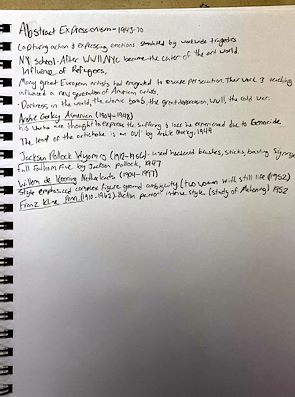 Abstract Expressionism - 1943-70
Capturing action & expressing emotions by worldwide tragedies
NY school - After WWII, NYC became the center of the art world.
Influence of Refugees,
Many great European artists had emigrated to escape persecution. Their work & teaching
influenced a new generation of American artists.
Darkness in the world, the atomic bomb, the great depression, WWII, the cold war.
Arshile Gorky Armenian (1904-1948)
his works are thought to express the suffering & loss he experienced due to Genocide
The leaf of the artichoke is an owl by Arshile Gorky, 1944
Jackson Pollock Wyoming (1912-1956) - used hardened brushes, sticks, basting syringe
Full Fathom Five by Jackson Pollock, 1947
Willem de Kooning Netherlands (1904-1997)
Style emphasized complex figure ground ambiguity (two women with still life) (1952)
Franz Kline Penn. (1910-1962) - Action intense style (study of Mahoning) 1952